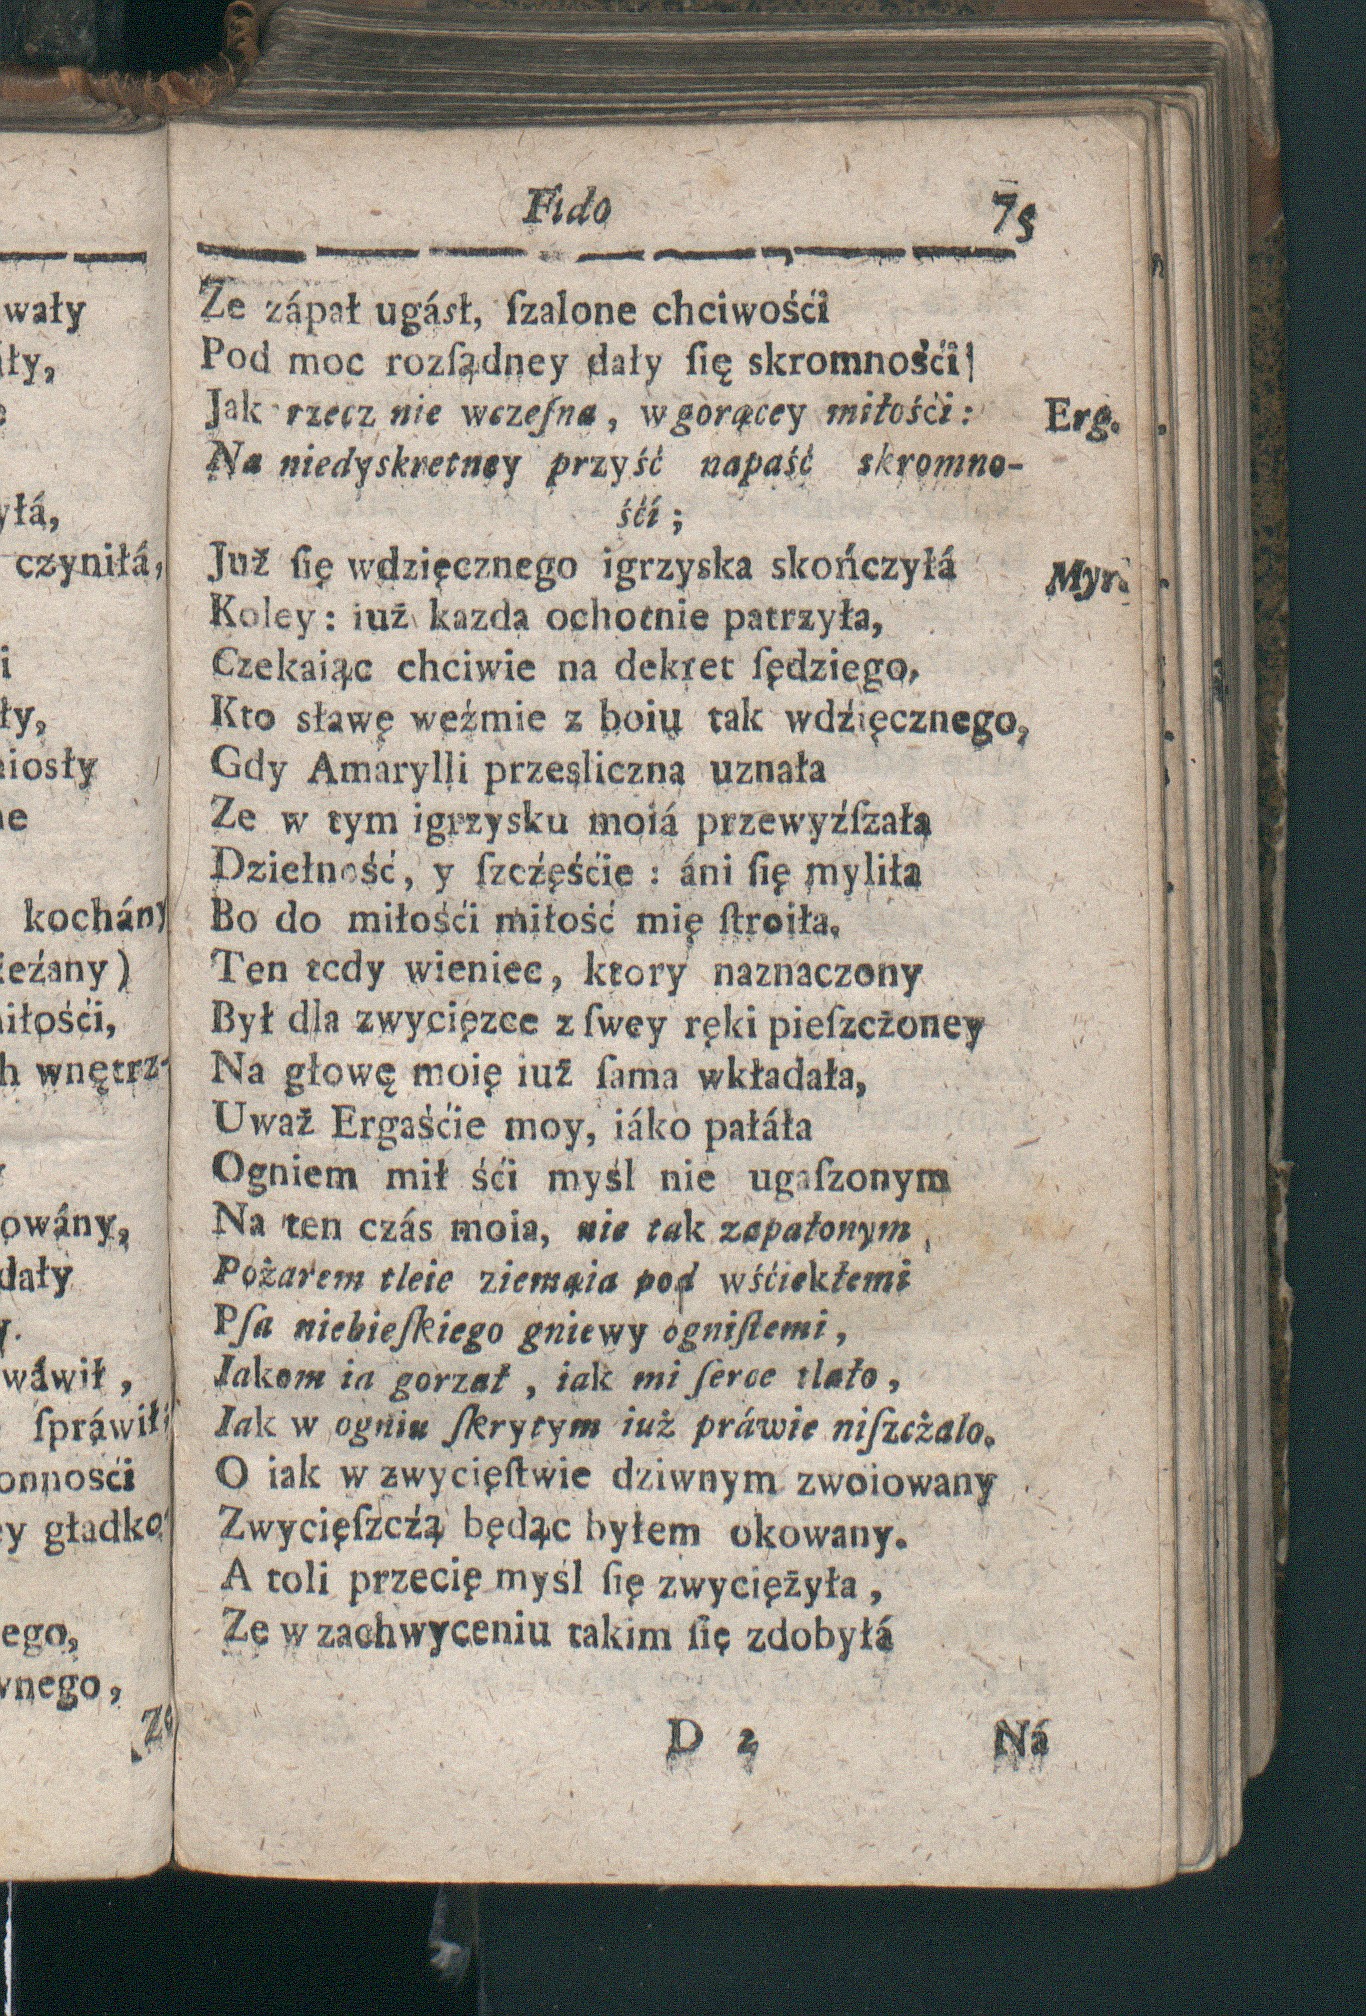 Fido 75
Ze zápał ugásł, ſzalone chciwośći
Pod moc rozſądney dały ſię skromnośći
Jak rzecz nie wczeſna, w gorącey miłośći: Erg.
Na niedyskretney przyść napaść skromno-
śći;
Już ſię wdzięcznego igrzyska skończyłá Myr.
Koley: iuż kazda ochotnie patrzyła,
Czekaiąc chciwie na dekret ſędziego,
Kto sławę weźmie z boiu tak wdźięcznego,
Gdy Amarylli przesliczna uznała
Ze w tym igrzysku moiá przewyźſzała
Dziełność, y ſzczęśćie: áni ſię myliła
Bo do miłośći miłość mię ſtroiła.
Ten tedy wieniec, ktory naznaczony
Był dla zwycięzce z ſwey ręki pieſzcżoney
Na głowę moię iuż ſama wkładała,
Uważ Ergaśćie moy, iáko pałáła
Ogniem mił śći myśl nie ugaſzonym
Na ten czás moia, nie tak zapałonym
Pożarem tleie ziemaia pod wśćiekłemi
Pſa niebieſkiego gniewy ogniſtemi,
Iakom ia gorzał, iak mi ſerce tlało,
Iak w ogniu ſkrytym iuż práwie niſzcżalo.
O iak w zwycięſtwie dziwnym zwoiowany
Zwycięſzcźą będąc byłem okowany.
A toli przecię myśl ſię zwyciężyła,
Ze w zachwyceniu takim ſię zdobyłá
D 2 Ná
wały
ły,
yłá,
czyniłá,
i
ły,
niosły
ne
kochány
ieźany)
iłośći,
h wnętrz-
owány,
dały
wáwił,
ſpráwił
onnośći
ey gładko
ego,
wnego,
Ze